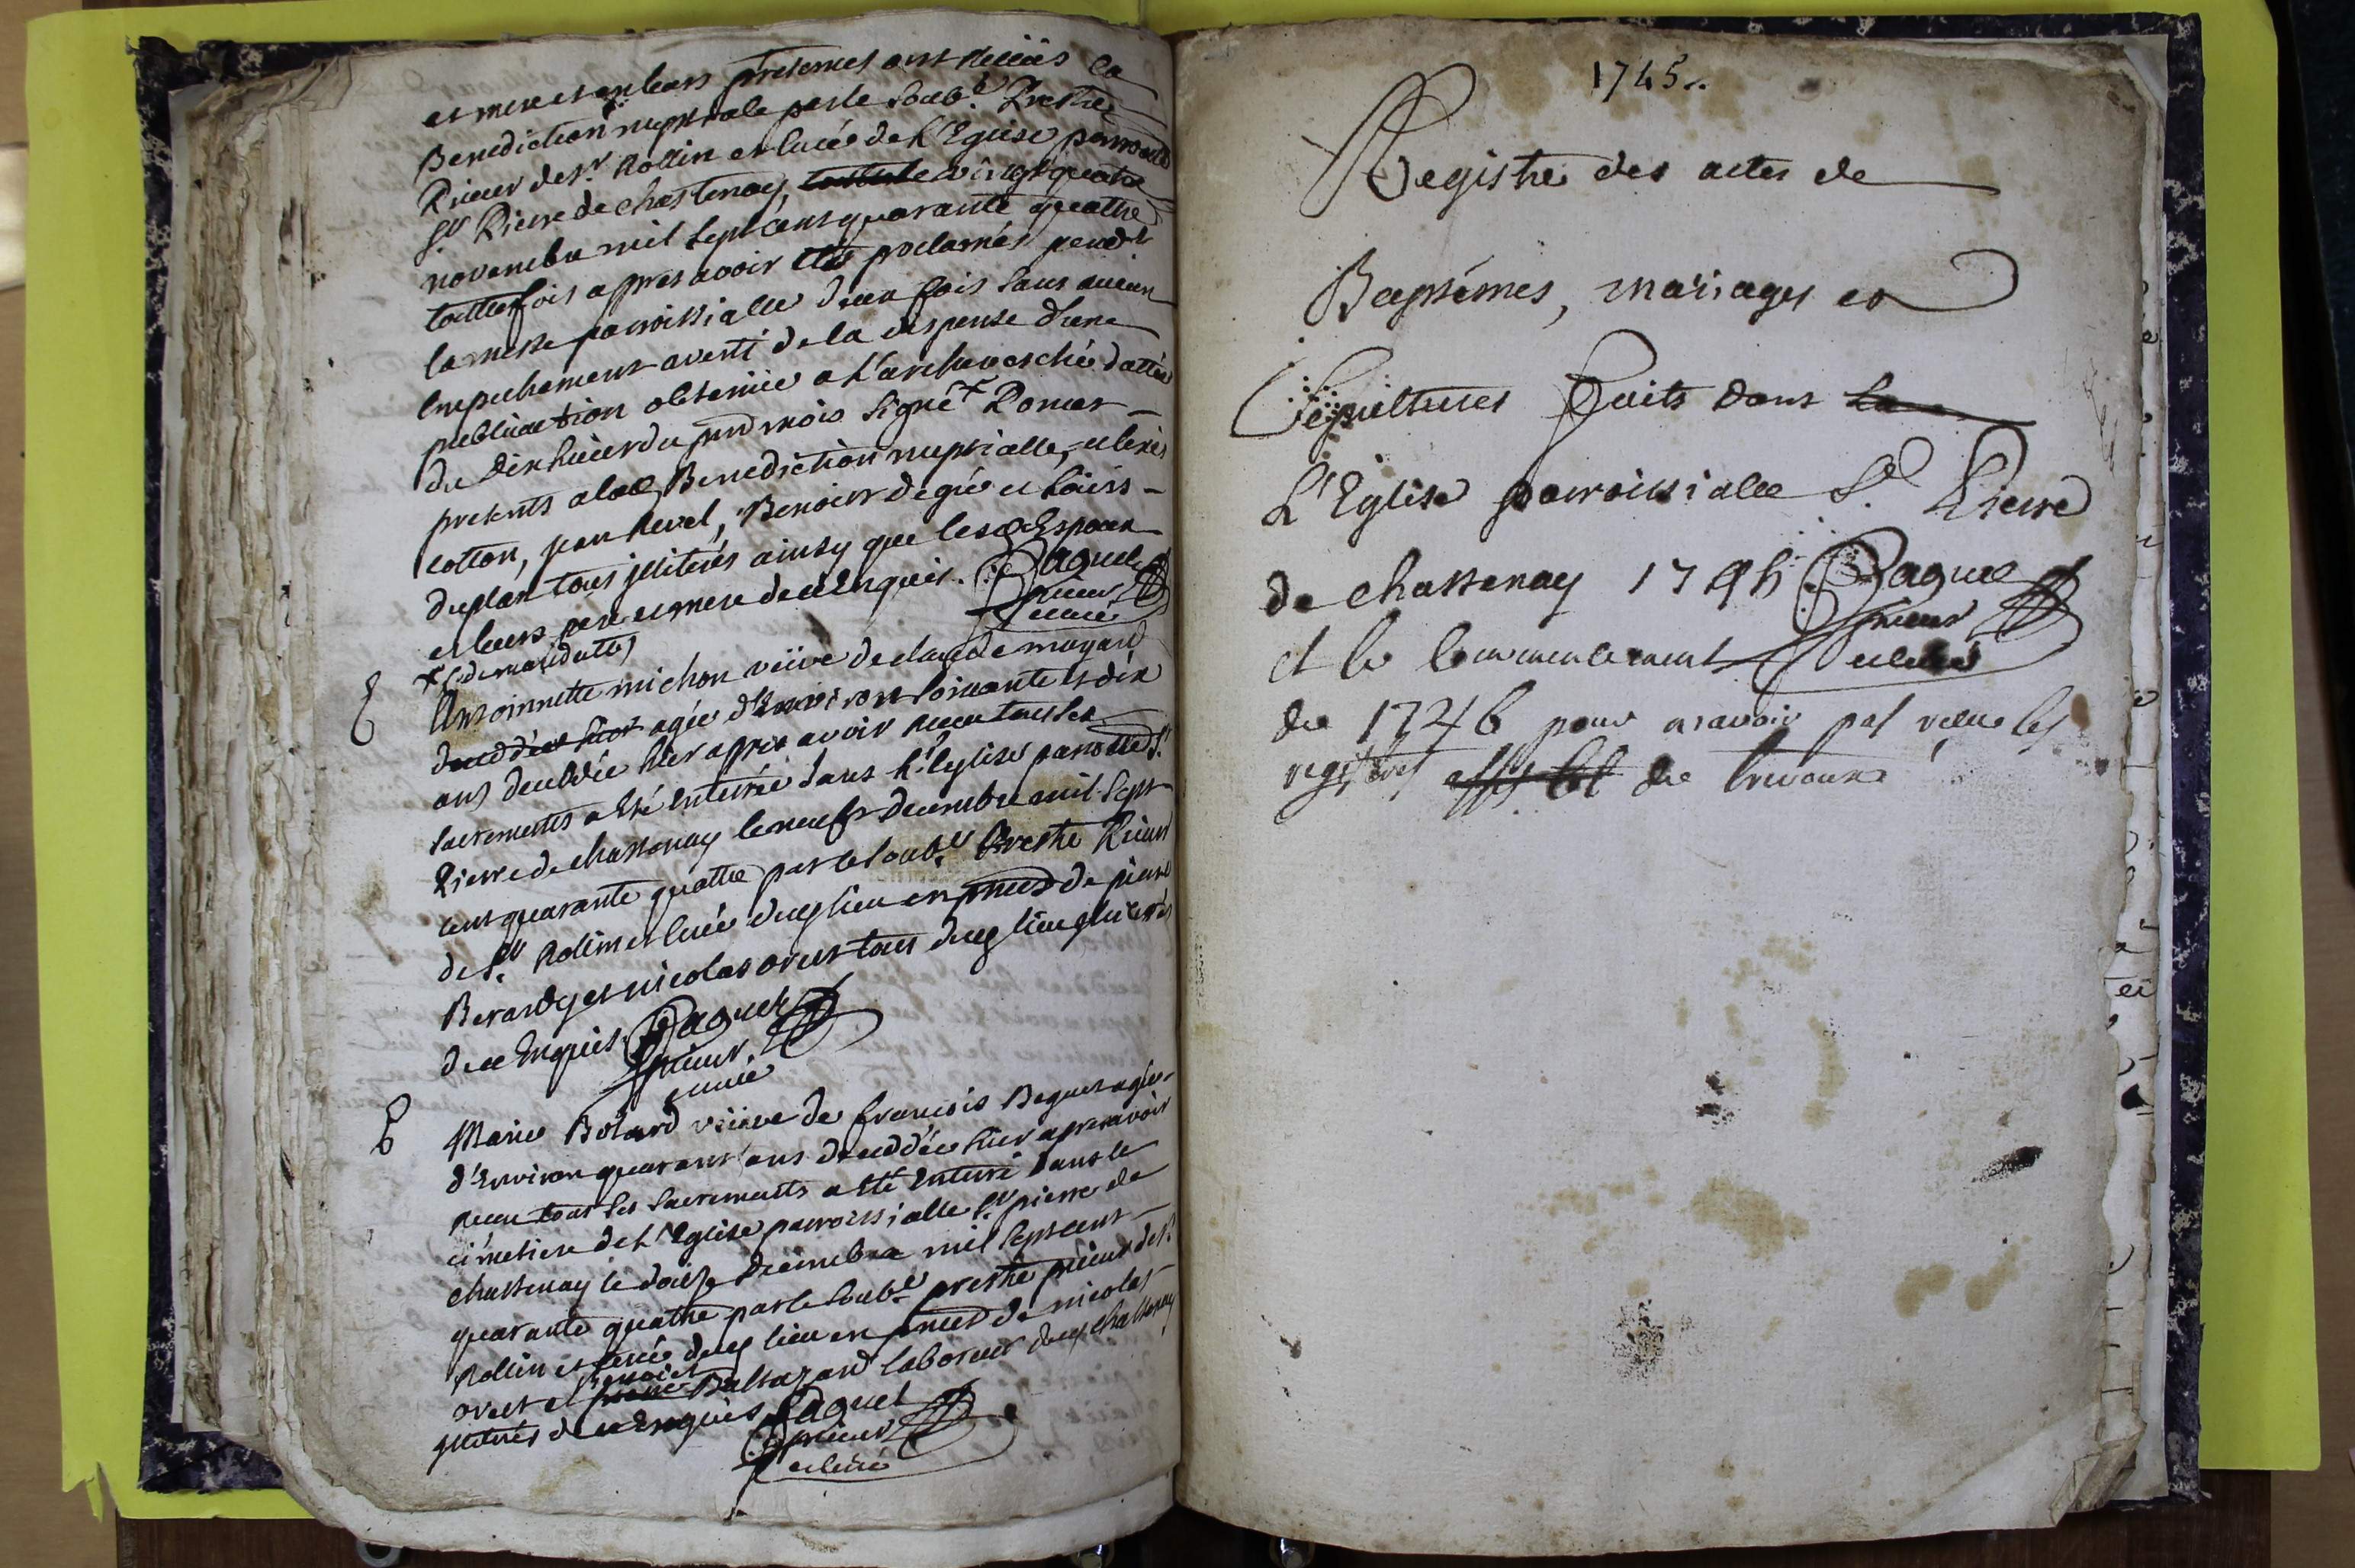 et mere et en leurs presences ont recüs la
Benediction nuptiale par le soub.é Prestre
Prieur de st. Rollin et curé de l'Eglise parroalle
st Pierre de chastenay, le vingt quatre
novembre mil sept cent quarante quattre
touttefois appres avoir été proclamés pendt
la messe parroissialle deux fois sans aucun
Empechement averti de la dispense d'une
publication obtenüe a L'archevesché dattée
du dix huict du pnt mois signé + Romer
presents alad. Benediction nuptialle,
cotton, jean Revel, Benoist degré et
duplan tous illiterés ainsy que lesd. Espoux
et leurs pere et mere de ce Enquis. Paquet
prieur
et curé
+
Anthoinette michon veüve de claude moyard
agée d'Environ soixante et dix
ans deceddée hier appres avoir receu tous les
sacrements a été enterrée dans L'Eglise parroalle st
Pierre de chastenay le neufs decembre mil sept
cent quarante quattre par le soub.é Prestre Prieur
de st. Rollin et curé dud. lieu en pnce de pierre
Berardy et nicolas ovest tous dud. lieu illiterés
de ce Enquis. Paquet
prieur.
et curé
Marie Botard veüve de francois Beguet agée
d'Environ quarant ans deceddée hier apres avoir
receu tous les sacrements a été enterré dans le
cimetiere de L'Eglise parroissialle st pierre de
chastenay le doize decembre mil sept cent
quarante quattre par le soub.é prestre prieur de st.
Rollin et curé dud. lieu en pnce de nicolas
Benoist
ovest et Baltazard laboreur dud. chastenay
illiterés de ce Enquis Paquet
prieur
et curé
1745..
Registre des actes de
Baptémes, mariages et
Sépultures faits dans la
L'Eglise parroissialle St. Pierre
de chastenay 1745 Paquet
prieur
et le Commencement et curé
de 1746 pour n'avoir pas receu les
registres de Trevoux